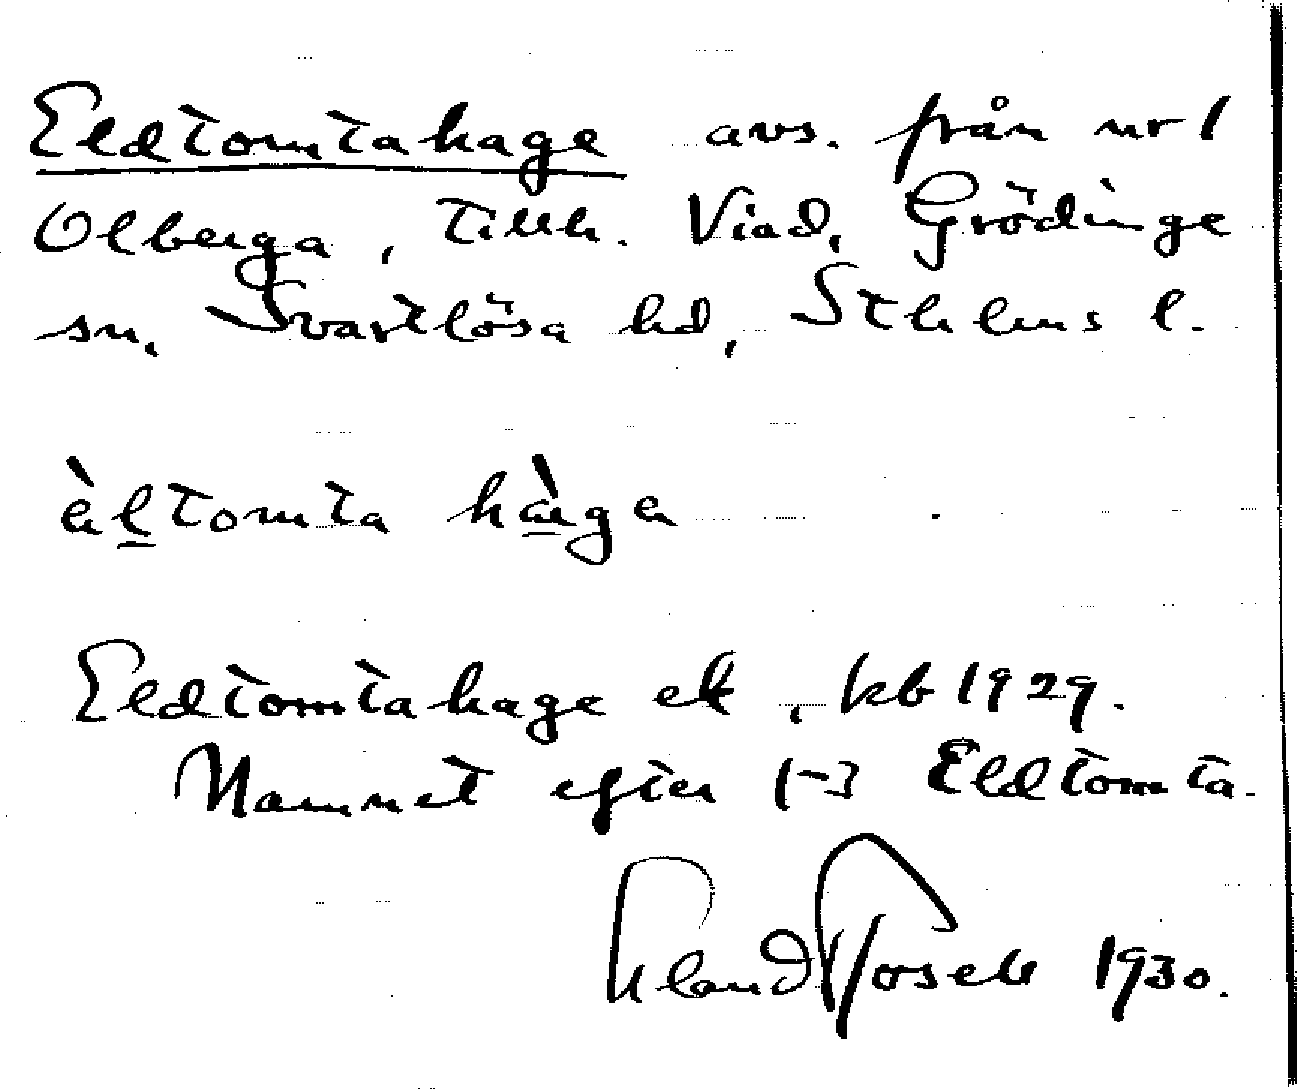 Eldtomtahage avs. från nr 1
Olberga, tillh. Viad, Grödinge
sn, Svartlösa hd, Sthlms l.
èl̲tomta hà̲ga
Eldtomtahage ek, kb 1929.
Namnet efter [-] Eldtomta.
Rosell 1930.